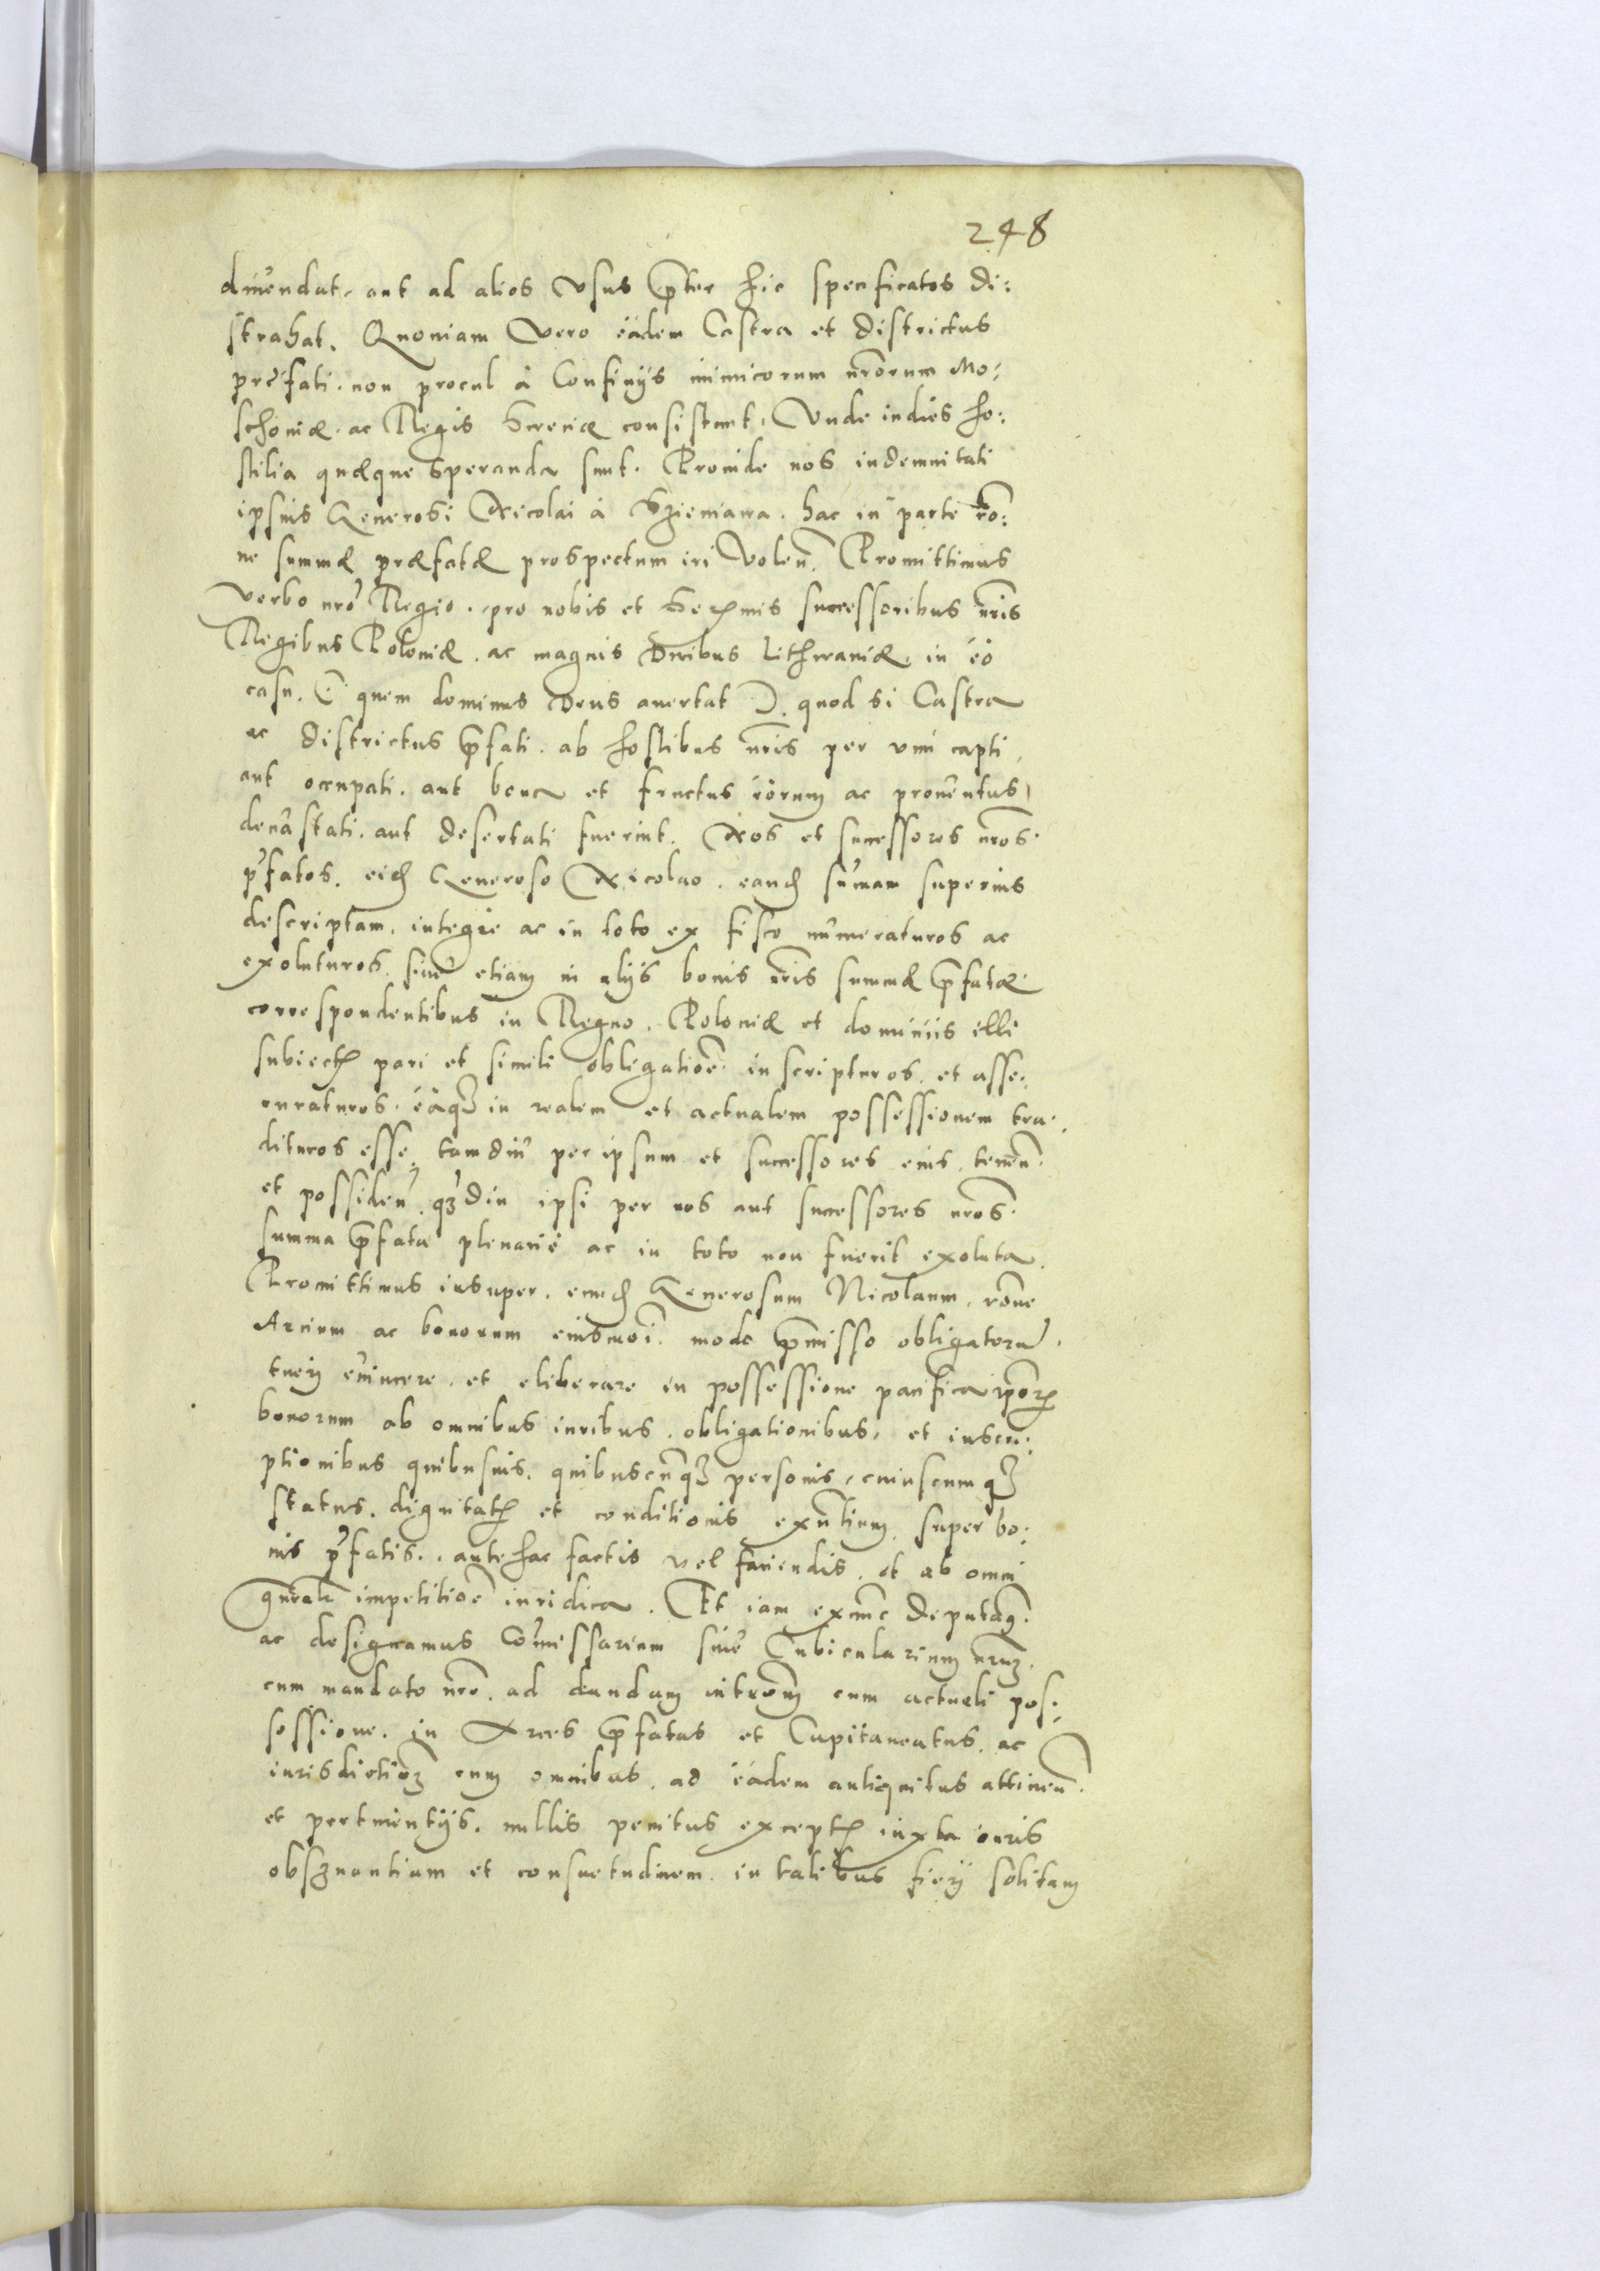 248
diuendat, aut ad alios Vsus p̄ter hic specificatos di:
strahat. Quoniam Vero eadem Castra et districtus
prefati. non procul à Confinijs inimicorum nr̄orum Mo:
schoniæ. ac Regis Sveciæ consistunt, Vnde indies ho:
stilia quæque speranda sunt. Proinde nos indemnitati
ipsius Generosi Nicolai à Szieniawa. hac in parte rō:
ne summæ præfatæ prospectum iri Volen̄. Promittimus
Verbo nr̄o Regio. pro nobis et Ser̄mis successoribus nr̄is
Regibus Poloniæ. ac magnis Dnibus Lithwaniæ, in eo
casu. ( quem dominus Deus auertat ). quod si Castra
ac districtus p̄fati. ab hostibus nr̄is per vim capti,
aut occupati. aut bona et fructus eorum ac prouentus,
deuastati. aut desertati fuerint. Nos et successores nr̄os.
p̄fatos. eid̄ Generoso Nicolao. eand̄ sum̄am superius
descriptam, integre ac in toto ex fisco numeraturos ac
exoluturos. siue etiam in alijs bonis nr̄is summæ p̄fatæ
correspondentibus in Regno. Poloniæ et dominiis illi
subiectꝭ pari et simili obligatiōe inscripturos. et asse:
curaturos. eaqꝫ in realem et actualem possessionem tra:
dituros esse, tamdiu per ipsum et successores eius tenen̄.
et possiden̄. qꝫdiu ipsi per nos aut successores nr̄os.
summa p̄fata plenarie ac in toto non fuerit exoluta.
Promittimus insuper. eund̄ Generosum Nicolaum, rōne
Arcium ac bonorum eiusmōi. modo p̄misso obligatorū.
tuerj euincere. et eliberare in possessione pacifica ip̄orꝝ
bonorum ab omnibus iuribus. obligationibus, et inscri:
ptionibus quibusuis. quibuscunqꝫ personis, cuiuscumqꝫ
status. dignitatꝭ et conditionis exn̄tium super bo:
nis p̄fatis.. antehac factis vel faciendis. et ab omni
gnrali impetitiōe iuridica. Et iam exnūc deputam̄.
ac designamus Com̄issarium siue Cubicularium nr̄uꝫ.
cum mandato nr̄o. ad dandam intrōm̄ cum actuali pos:
sessione. in Arces p̄fatas et Capitaneatus. ac
iurisdictioꝫ cum omnibus. ad eadem antiquitus attinen̄.
et pertinentijs. nullis penitus exceptꝭ iuxta iuris
obsꝫuantiam et consuetudinem. in talibus fierj solitam